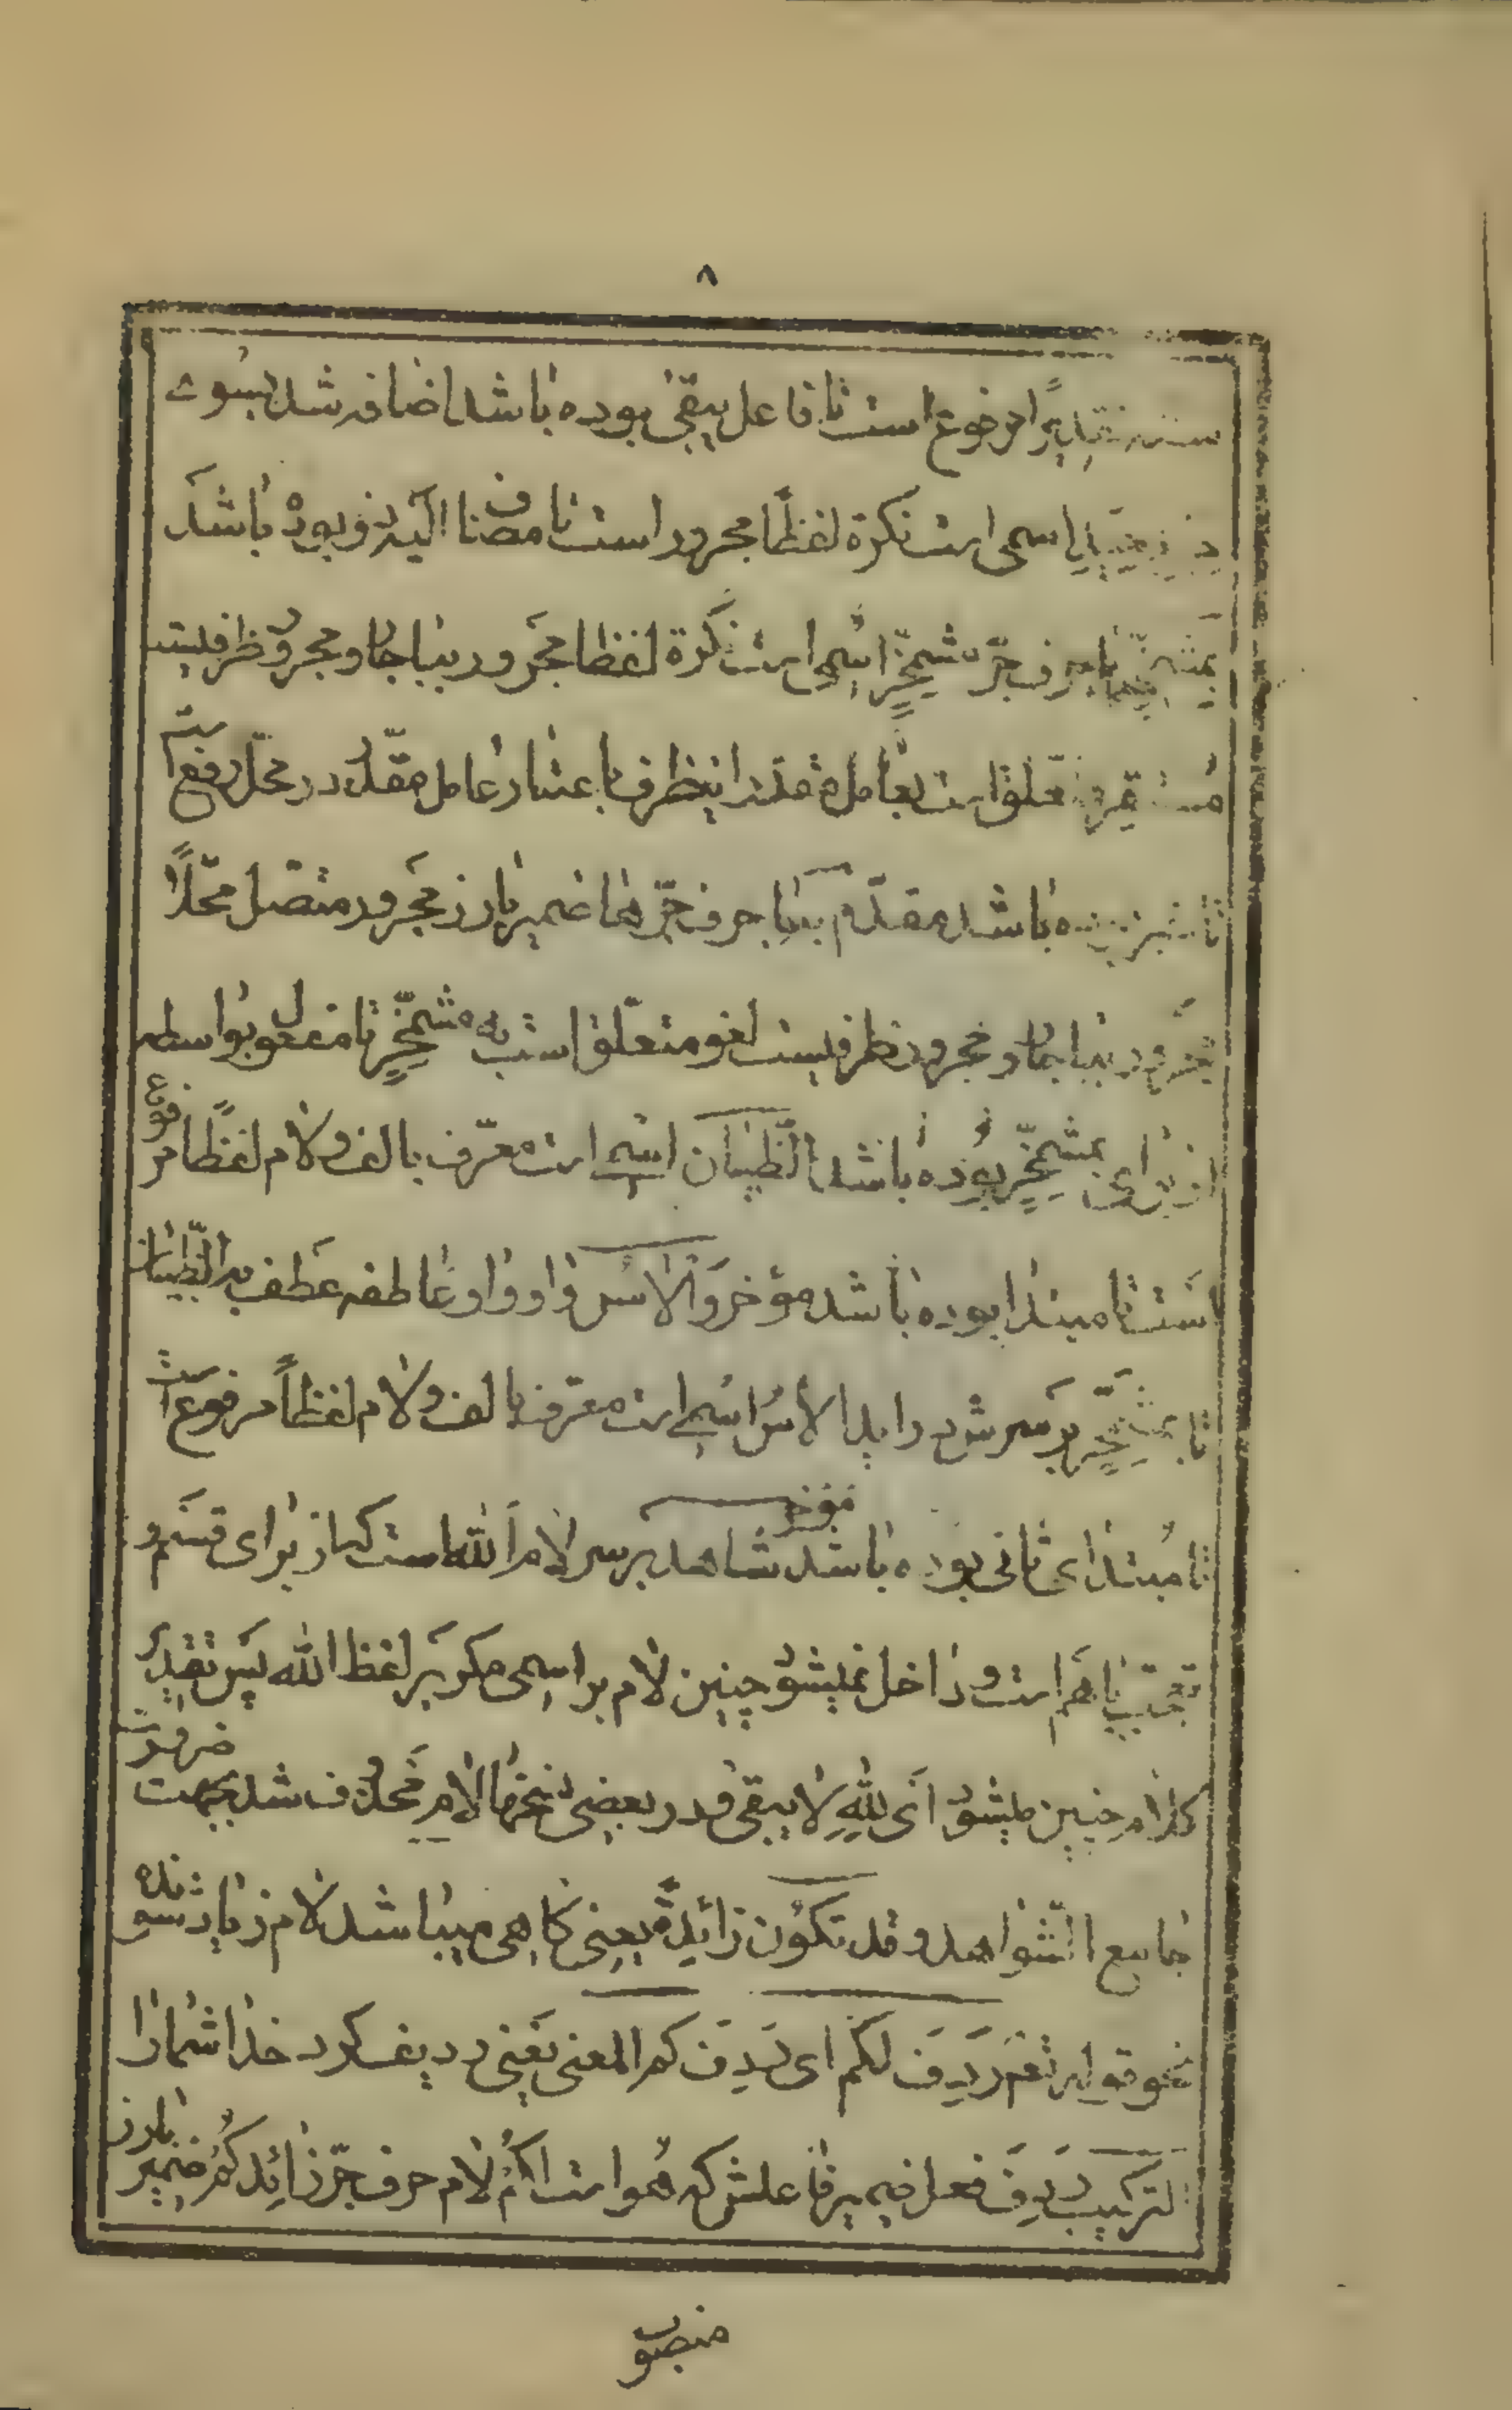 ۸
تقدیرًا مرفوع است تا فاعل یبقی بوده باشد اضافه شد بسوی
اسمی است نکرة لفظًا مجرور است تا مضاف الیه ذو بوده باشد
بمشمخرّ با حرف جرّ مشمخرّ اسمی است نکرة لفظا مجرور بنا جار و مجرور ظرفیست
مستقر متعلق است بعامل مقدر این ظرف باعتبار عامل مقدر در محل رفع است
تا خبر بوده باشد مقدّم بها با حرف جرّ ها ضمیر بارز مجرور متصل محلًا
مجرور بنا جار و مجرور ظرفیست لغو متعلق است به مشمخرّ تا مفعول بواسطه
از برای بمشمخرّ بوده باشد الظّیّان اسمی است معرّف بالف و لام لفظًا مرفوع
است تا مبتدا بوده باشد مؤخر و الاس واو واو عاطفه عطف به الظّیّان
تا بمشمخرّ بر سرش در اید الاس اسمی است معرّف بالف و لام لفظًا مرفوع است
تا مبتدای ثانی بوده باشد مؤخر شاهد بر سر لام الله است که از برای قسم و
تعجّب باهم است و داخل نمیشود چنین لام بر اسمی مگر بر لفظ الله پس تقدیر
کلام چنین میشود انی لله لا یبقی و در بعضی نسخها لام محذوف شد بجهت ضرورت
جامع الشواهد و قد تکون زائدة یعنی کاهی میباشد لام زیاد شونده
نحو قوله تعم ردف لکم ای ردف کم المعنی یعنی ردیف کرد خدا شما را
لترکیب ردف فعل ضمیر فاعلش که هو است لکم لام حرف جرّ زائد کم ضمیر بارز
منصوب